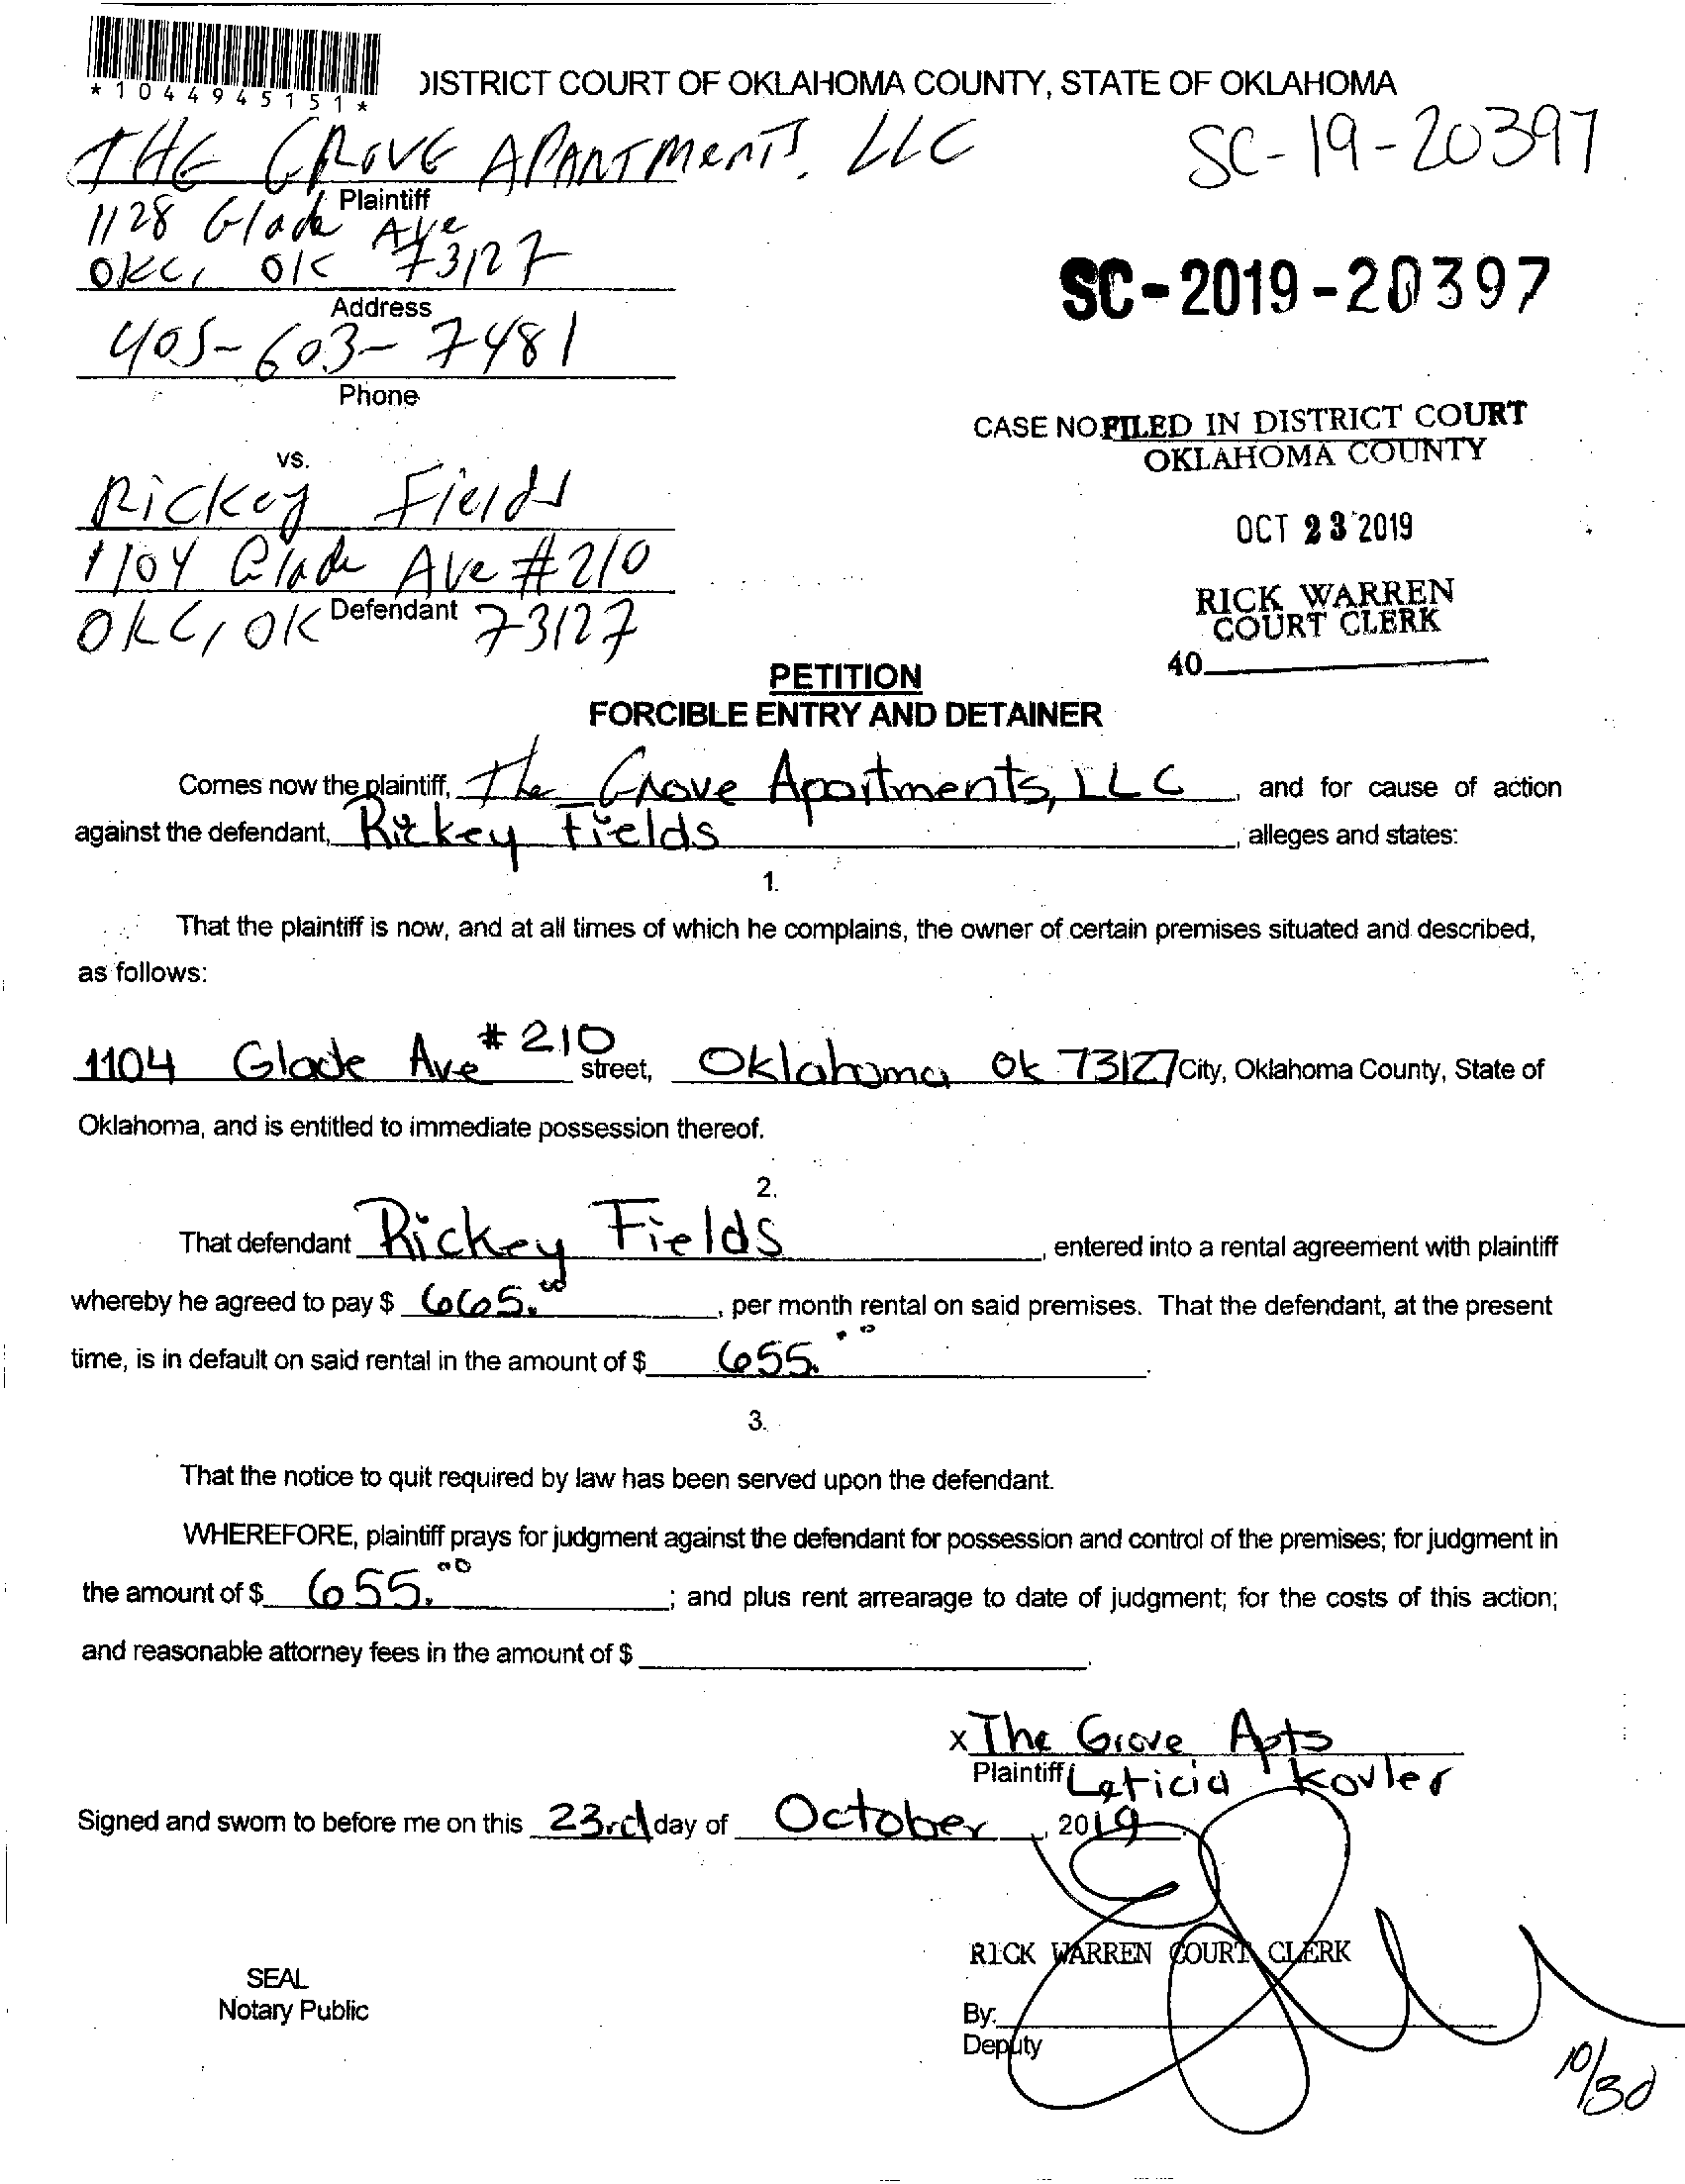 *1044945151*
DISTRICT COURT OF OKLAHOMA COUNTY, STATE OF OKLAHOMA
THE GROVE APARTMENTS, LLC
SC-19-20397
Plaintiff
1128 Glade Ave
OKC, OK 73127
SC-2019-20397
Address
405-603-7481
Phone
CASE NO. FILED IN DISTRICT COURT
OKLAHOMA COUNTY
vs.
Rickey Fields
OCT 23 2019
1104 Glade Ave #210
Defendant
OKC, OK 73127
RICK WARREN
COURT CLERK
40
PETITION
FORCIBLE ENTRY AND DETAINER
Comes now the plaintiff, The Grove Apartments, LLC, and for cause of action
against the defendant, Rickey Fields, alleges and states:
1.
That the plaintiff is now, and at all times of which he complains, the owner of certain premises situated and described,
as follows:
1104 Glade Ave #210 street, Oklahoma Ok 73127 City, Oklahoma County, State of
Oklahoma, and is entitled to immediate possession thereof.
2.
That defendant Rickey Fields, entered into a rental agreement with plaintiff
whereby he agreed to pay $ 665.00, per month rental on said premises. That the defendant, at the present
time, is in default on said rental in the amount of $ 655.00.
3.
That the notice to quit required by law has been served upon the defendant.
WHEREFORE, plaintiff prays for judgment against the defendant for possession and control of the premises; for judgment in
the amount of $ 655.00; and plus rent arrearage to date of judgment; for the costs of this action;
and reasonable attorney fees in the amount of $
x The Grove Apts
Plaintiff Leticia Kovler
Signed and sworn to before me on this 23rd day of October, 2019.
RICK WARREN COURT CLERK
SEAL
Notary Public
By:
Deputy
10/30